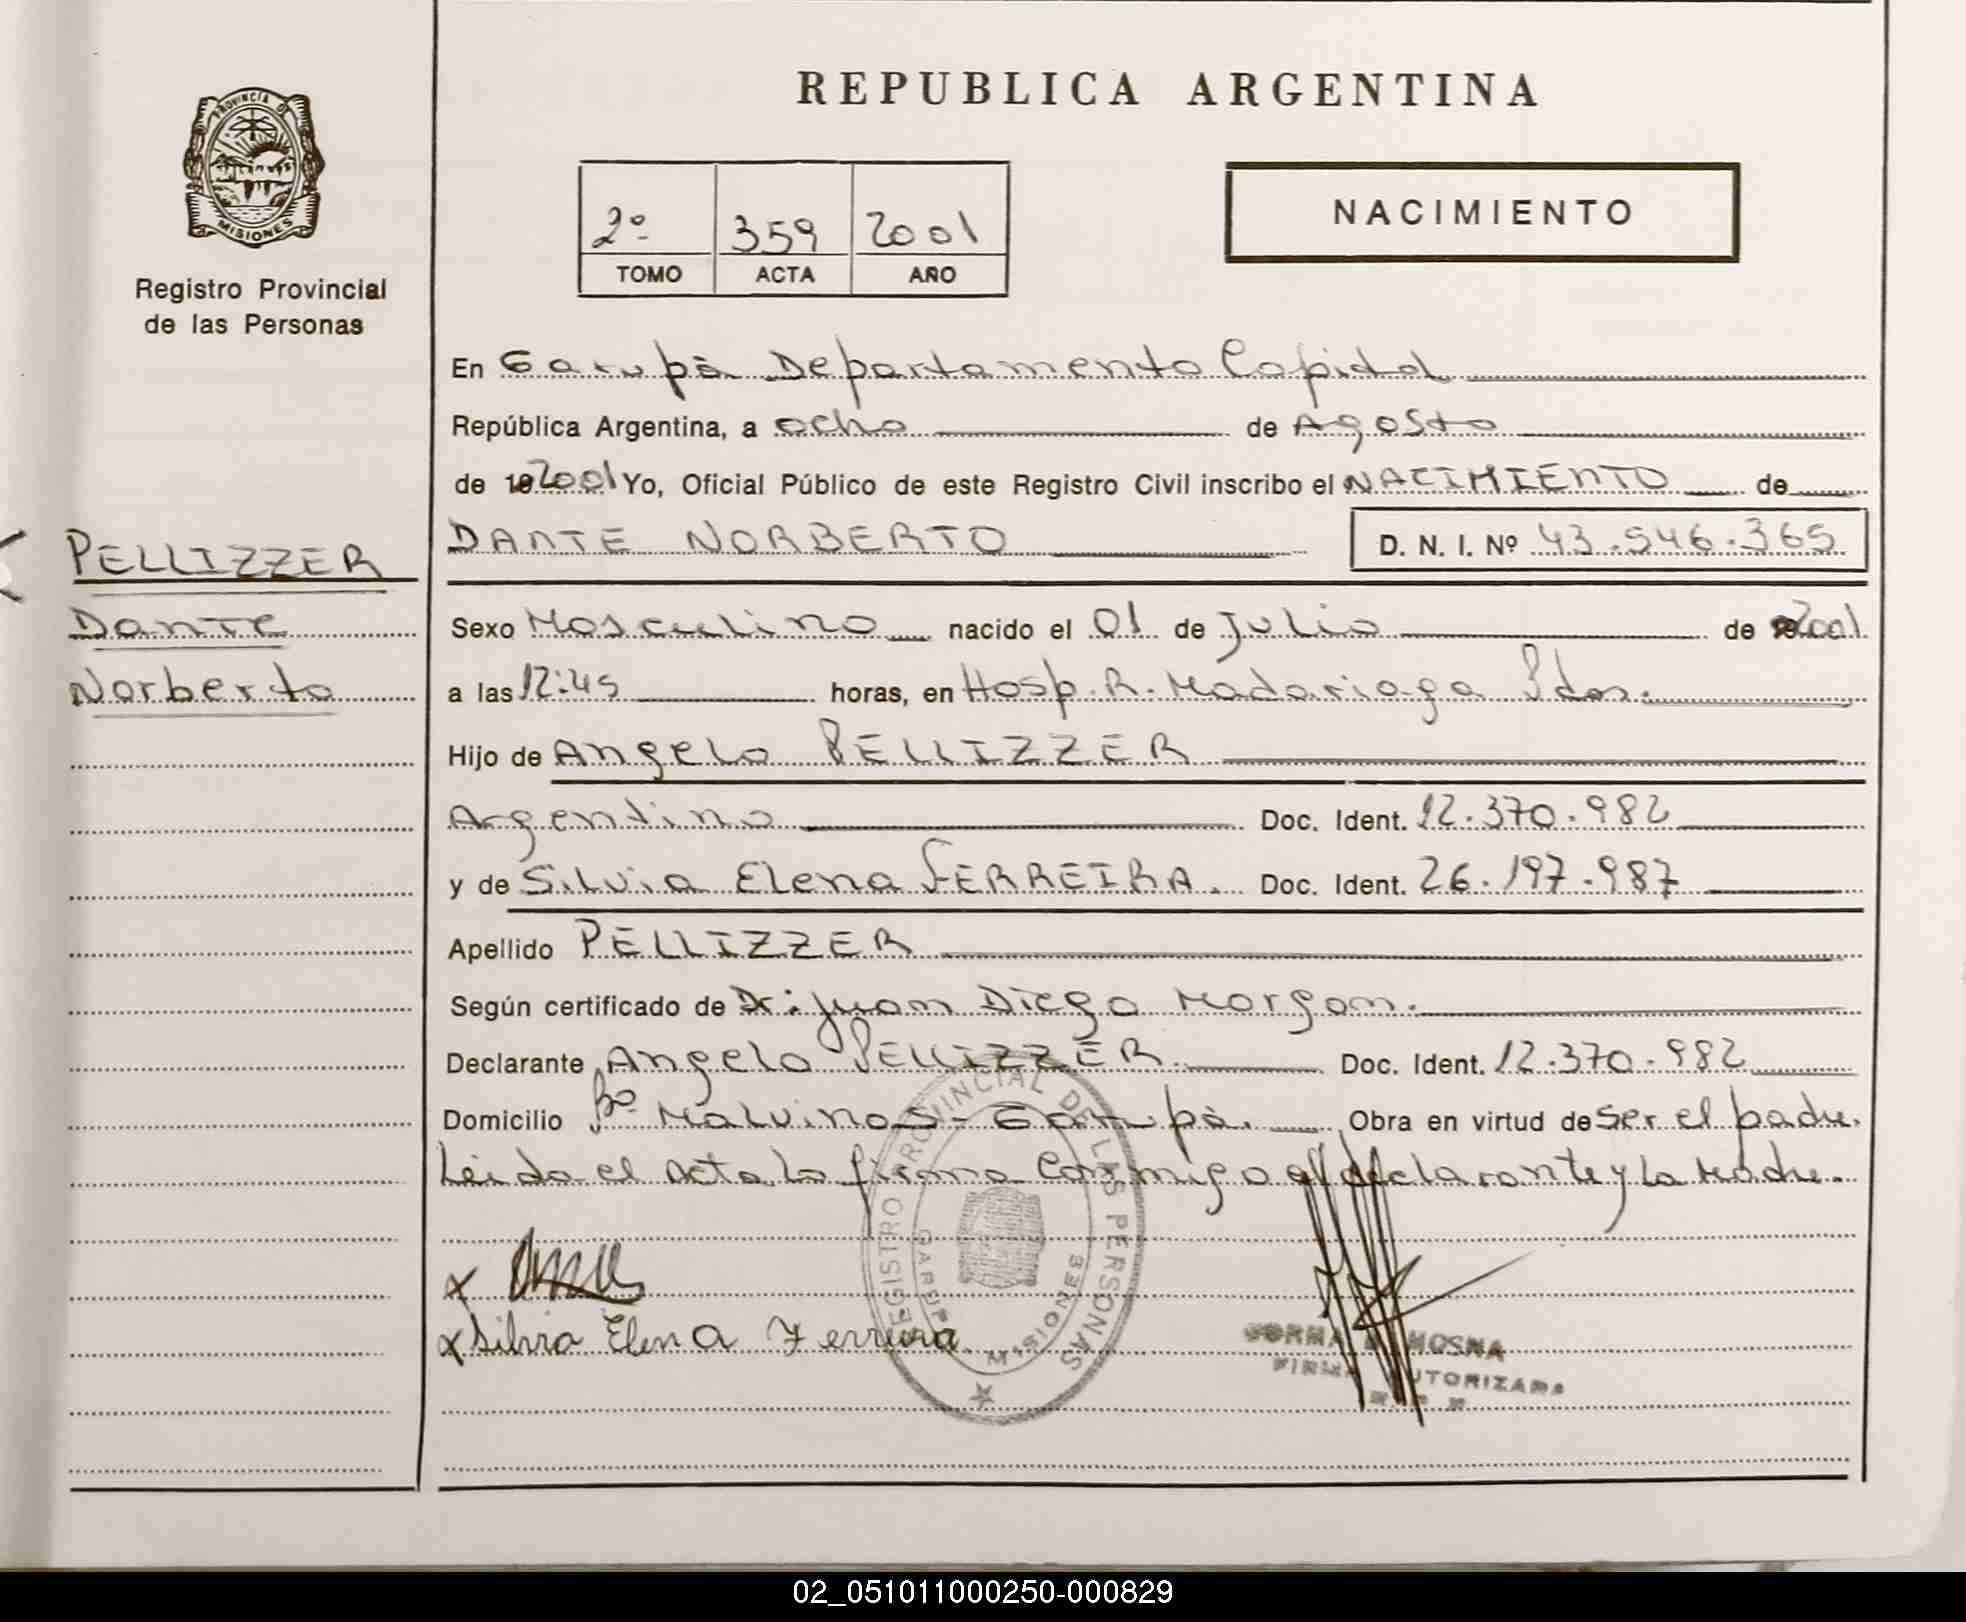 REPUBLICA ARGENTINA
PROVINCIA DE
MISIONES
Registro Provincial
de las Personas
2º 359 2001
TOMO ACTA AÑO
NACIMIENTO
En Garupà Departamento Capital
República Argentina, a ocho de Agosto
de 19 2001 Yo, Oficial Público de este Registro Civil inscribo el NACIMIENTO de
PELLIZZER
DANTE NORBERTO D. N. I. Nº 43.546.365
Dante
Sexo Masculino nacido el 01 de Julio de 2001
Norberto
a las 12:45 horas, en Hosp. R. Madariaga Pdas.
Hijo de Angelo PELLIZZER
Argentino Doc. Ident. 12.370.982
y de Silvia Elena FERREIRA. Doc. Ident. 26.197.987
Apellido PELLIZZER
Según certificado de Dr: Juan Diego Morgan.
Declarante Angelo PELLIZZER. Doc. Ident. 12.370.982
Domicilio Bº Malvinas - Garupà. Obra en virtud de ser el padre.
Leida el Acta la firma Conmigo el declarante y la Madre.
REGISTRO PROVINCIAL DE LAS PERSONAS
GARUPA MISIONES
x Silvia Elena Ferreira.
MOSNA
FIRMA AUTORIZADA
02_051011000250-000829